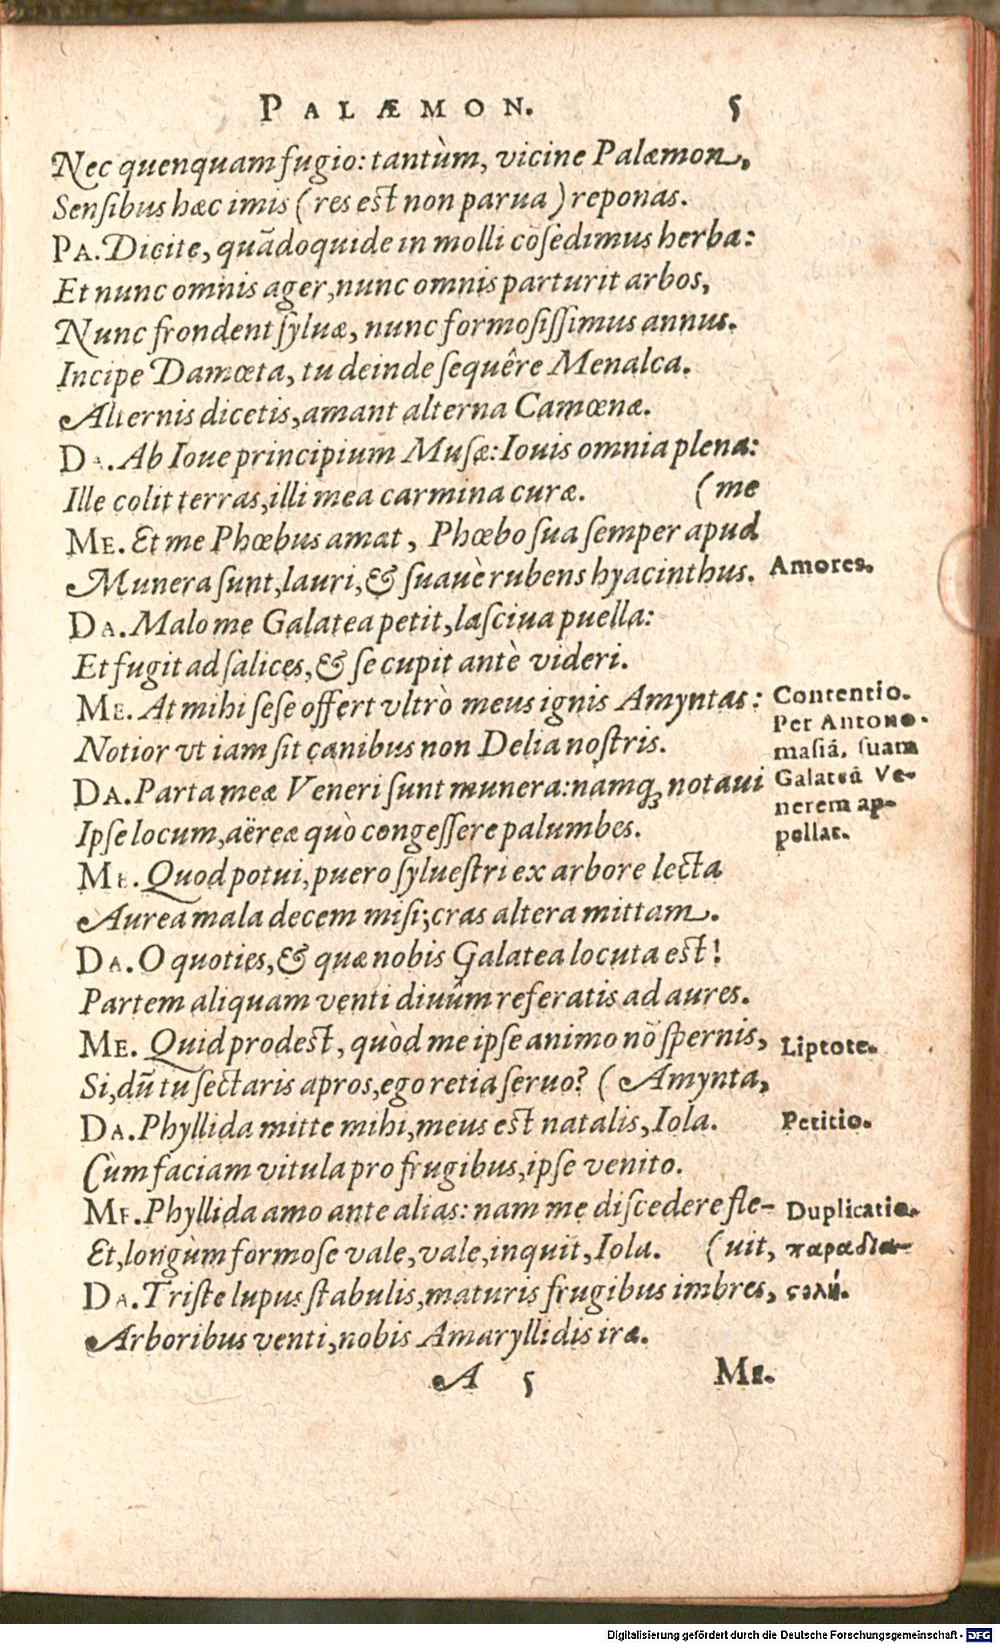 PALÆMON. 5
Nec quenquam fugio: tantùm, vicine Palæmon,
Sensibus hæc imis (res est non parua) reponas.
PA. Dicite, quãdoquide in molli cõsedimus herba:
Et nunc omnis ager, nunc omnis parturit arbos,
Nunc frondent syluæ, nunc formosissimus annus.
Incipe Damœta, tu deinde sequêre Menalca.
Alternis dicetis, amant alterna Camœnæ.
DA. Ab Ioue principium Musæ: Iouis omnia plena:
Ille colit terras, illi mea carmina curæ. (me
ME. Et me Phœbus amat, Phœbo sua semper apud
Munera sunt, lauri, & suauè rubens hyacinthus.
Amores.
DA. Malo me Galatea petit, lasciua puella:
Et fugit ad salices, & se cupit antè videri.
ME. At mihi sese offert vltrò meus ignis Amyntas:
Notior vt iam sit canibus non Delia nostris.
DA. Parta meæ Veneri sunt munera: namq; notaui
Ipse locum, aëreæ quò congessere palumbes.
Contentio.
Per Antono-
masiã, suam
Galateã Ve-
nerem ap-
pellat.
ME. Quod potui, puero syluestri ex arbore lecta
Aurea mala decem misi; cras altera mittam.
DA. O quoties, & quæ nobis Galatea locuta est!
Partem aliquam venti diuûm referatis ad aures.
ME. Quid prodest, quòd me ipse animo nõ spernis,
Si, dũ tu sectaris apros, ego retia seruo? (Amynta,
Liptote.
DA. Phyllida mitte mihi, meus est natalis, Iola.
Cùm faciam vitula pro frugibus, ipse venito.
Petitio.
ME. Phyllida amo ante alias: nam me discedere fle-
Et, longùm formose vale, vale, inquit, Iola. (uit,
DA. Triste lupus stabulis, maturis frugibus imbres,
Arboribus venti, nobis Amaryllidis iræ.
Duplicatio.
παραδια-
ϛολή.
A 5 ME.
Digitalisierung gefördert durch die Deutsche Forschungsgemeinschaft - DFG